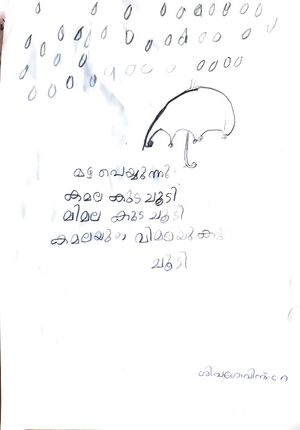 മഴ പെയ്യുന്നു
കമല കുട ചൂടി
വിമല കുട ചൂടി
കമലയും വിമലയും കു
ചൂടി